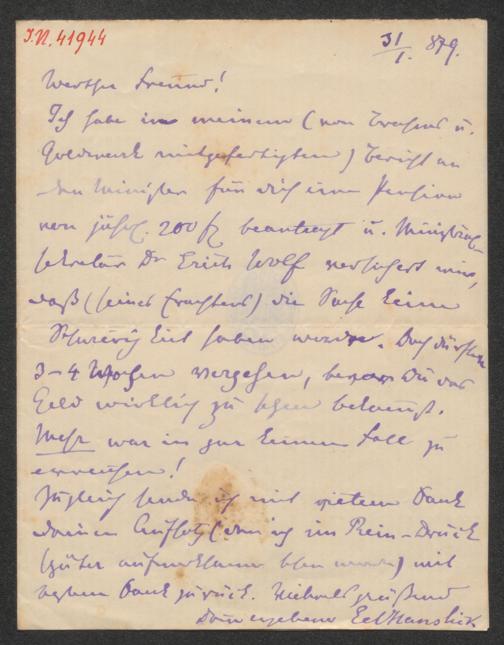 I.N. 41944
31/1. 879.
Werther Freund!
Ich habe in meinem (von Brahms u.
Goldmark mitgefertigten) Bericht an
den Minister für dich eine Pension
von jährl. 200 fl beantragt u. Ministerial-
sekretär Dr Erich Wolf versichert mir,
daß (seines Erachtens) die Sache keine
Schwierigkeit haben werde. Doch dürften
3-4 Wochen vergehen, bevor Du das
Geld wirklich zu bekommst.
Mehr war in gar keinem Fall zu
erreichen!
Zugleich sende ich mit vielem Dank
deinen Aufsatz (den ich im Rein-Druck
später aufmerksam lesen werde) mit
Dank zurück. grüßend
Dein ergebener Ed Hanslick